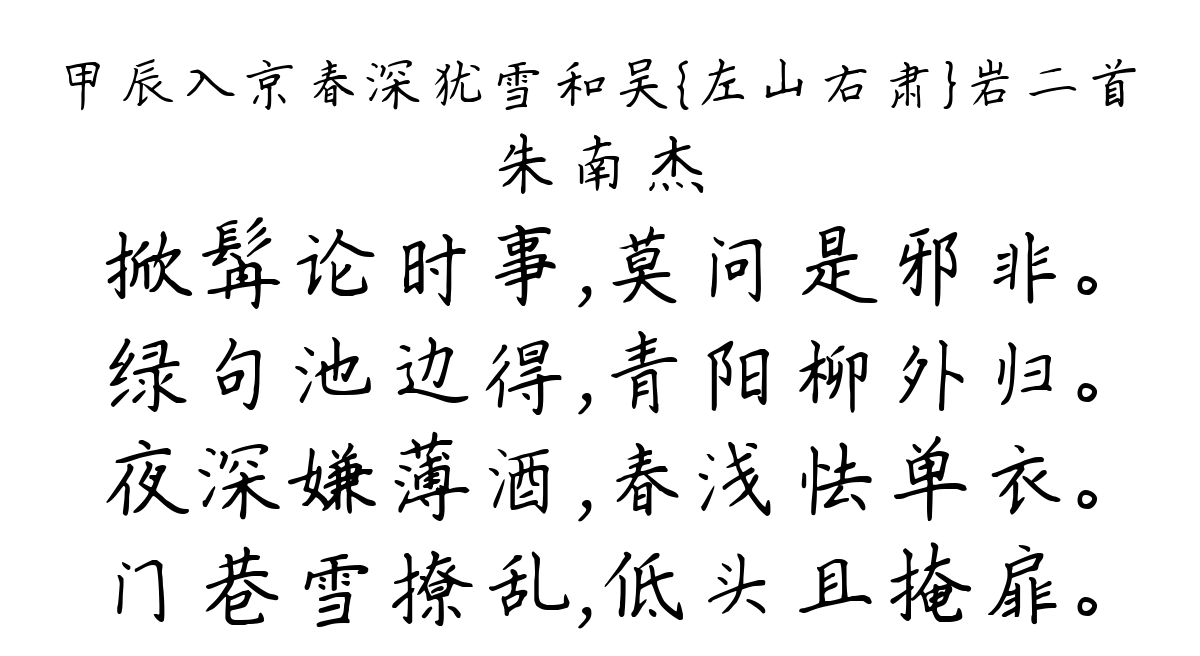 甲辰入京春深犹雪和吴{左山右肃}岩二首
朱南杰
掀髯论时事,莫问是邪非。
绿句池边得,青阳柳外归。
夜深嫌薄酒,春浅怯单衣。
门巷雪撩乱,低头且掩扉。